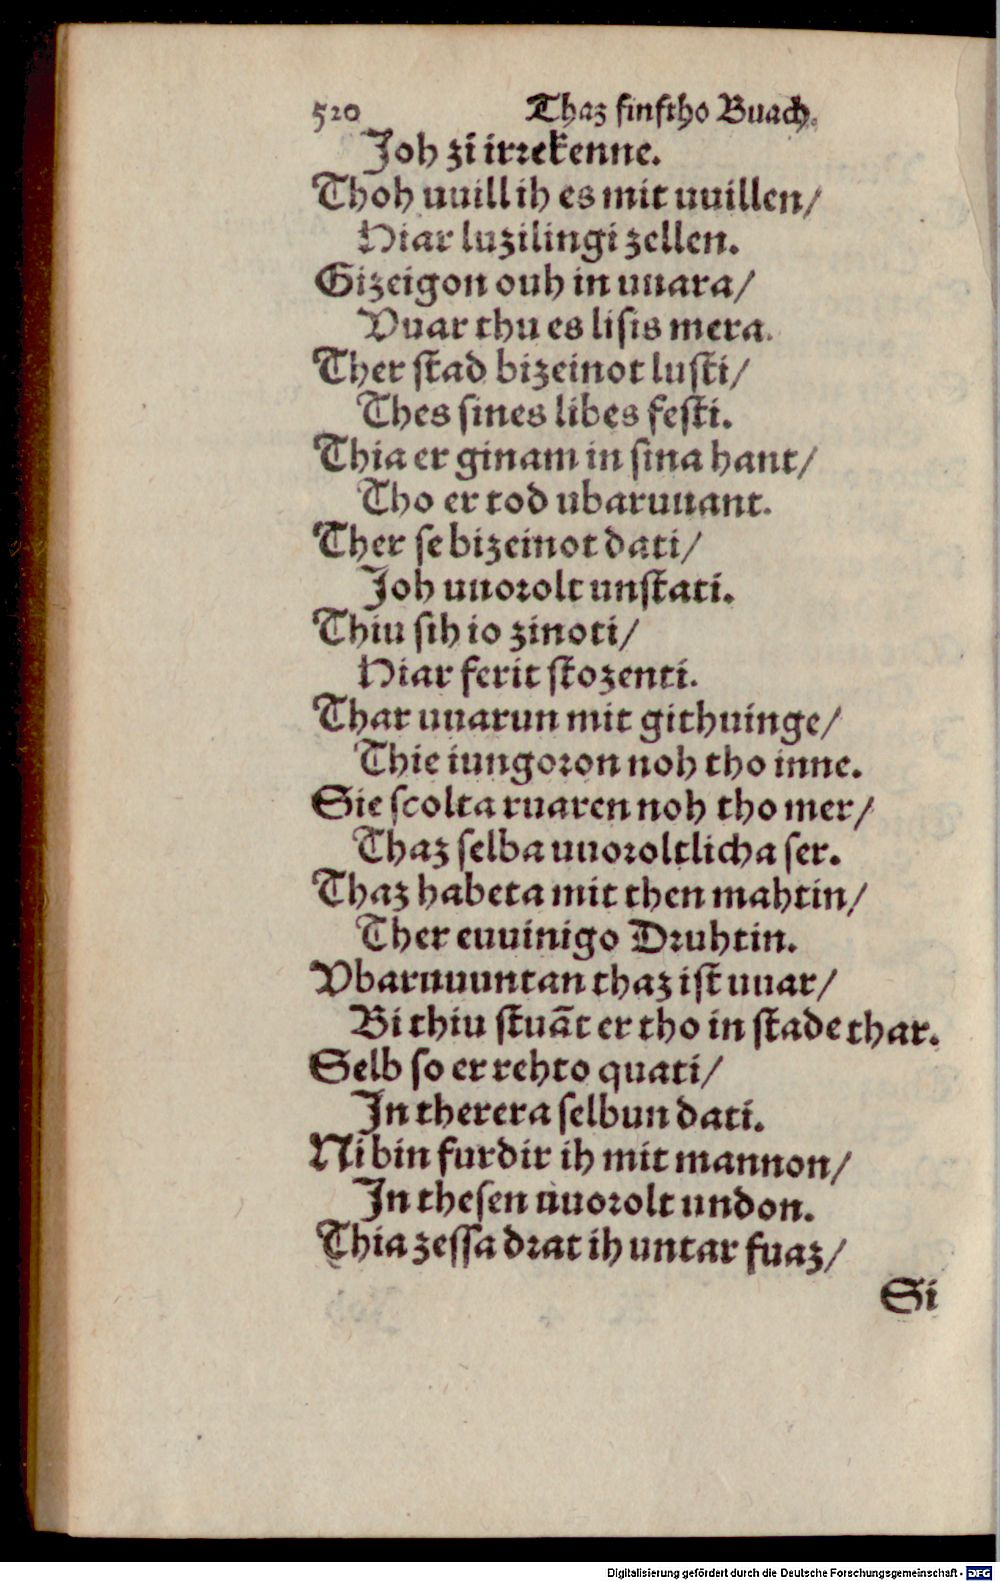 520 Thaz finftho Buach.
Joh zi irrekenne.
Thoh uuill ih es mit uuillen/
Hiar luzilingi zellen.
Gizeigon ouh in uuara/
Vuar thu es lisis mera.
Ther stad bizeinot lusti/
Thes sines libes festi.
Thia er ginam in sina hant/
Tho er tod ubaruuant.
Ther se bizeinot dati/
Joh uuorolt unstati.
Thiu sih io zinoti/
Hiar ferit stozenti.
Thar uuarun mit githuinge/
Thie iungoron noh tho inne.
Sie scolta ruaren noh tho mer/
Thaz selba uuoroltlicha ser.
Thaz habeta mit then mahtin/
Ther euuinigo Druhtin.
Vbaruuuntan thaz ist uuar/
Bi thiu stuãt er tho in stade thar.
Selb so er rehto quati/
In therera selbun dati.
Ni bin furdir ih mit mannon/
In thesen uuorolt undon.
Thia zessa drat ih untar fuaz/
Si
Digitalisierung gefördert durch die Deutsche Forschungsgemeinschaft - DFG